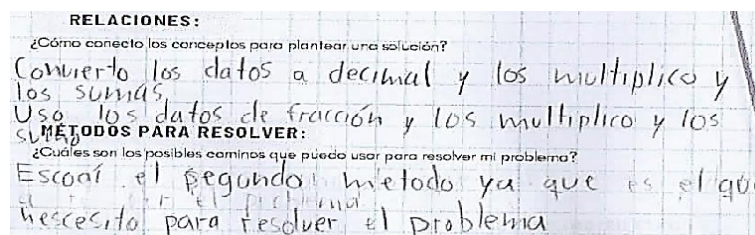 RELACIONES:
¿Cómo conecto los conceptos para plantear una solución?
Convierto los datos a decimal y los multiplico y
los sumas
Uso los datos de fracción y los multiplico y los
sumo
MÉTODOS PARA RESOLVER:
¿Cuáles son los posibles caminos que puedo usar para resolver mi problema?
Escogí el segundo metodo ya que es el
nescesito para resolver el problema